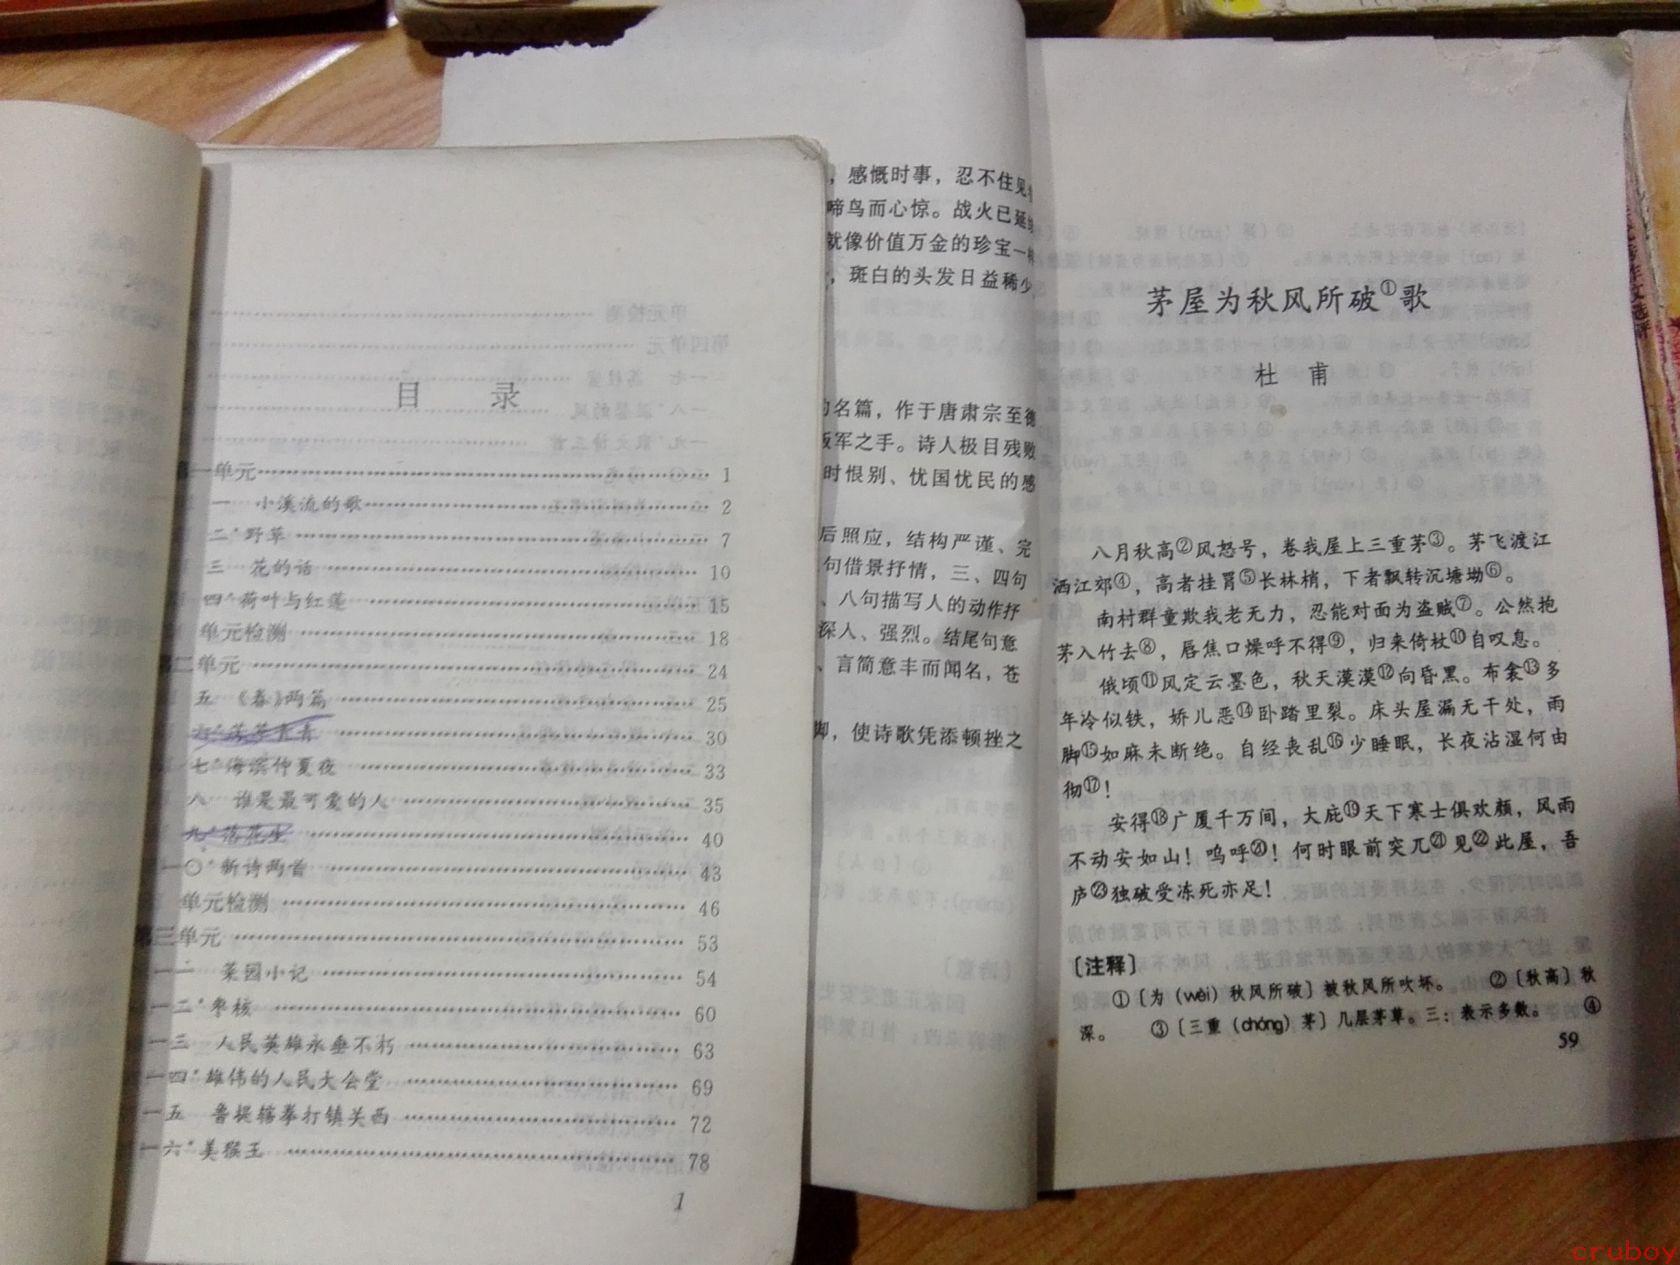 目 录
第一单元 1
一 小溪流的歌 2
二*野草 7
三 花的话 10
四*荷叶与红莲 15
单元检测 18
第二单元 24
五 《春》两篇 25
30
七*海滨仲夏夜 33
八 谁是最可爱的人 35
九*落花生 40
一〇*新诗两首 43
单元检测 46
第三单元 53
一一 菜园小记 54
一二*枣核 60
一三 人民英雄永垂不朽 63
一四*雄伟的人民大会堂 69
一五 鲁提辖拳打镇关西 72
一六*美猴王 78
1
，感慨时事，忍不住见
啼鸟而心惊。战火已延
就像价值万金的珍宝一
，斑白的头发日益稀少
的名篇，作于唐肃宗至德
叛军之手。诗人极目残败
时恨别、忧国忧民的感
后照应，结构严谨、完
句借景抒情，三、四句
、八句描写人的动作抒
深人、强烈。结尾句意
、言简意丰而闻名，苍
脚，使诗歌凭添顿挫之
茅屋为秋风所破①歌
杜 甫
八月秋高②风怒号，卷我屋上三重茅③。茅飞渡江
洒江郊④，高者挂罥⑤长林梢，下者飘转沉塘坳⑥。
南村群童欺我老无力，忍能对面为盗贼⑦。公然抱
茅入竹去⑧，唇焦口燥呼不得⑨，归来倚杖⑩自叹息。
俄顷⑪风定云墨色，秋天漠漠⑫向昏黑。布衾⑬多
年冷似铁，娇儿恶⑭卧踏里裂。床头屋漏无干处，雨
脚⑮如麻未断绝。自经丧乱⑯少睡眠，长夜沾湿何由
彻⑰！
安得⑱广厦千万间，大庇⑲天下寒士俱欢颜，风雨
不动安如山！呜呼⑳！何时眼前突兀㉑见㉒此屋，吾
庐㉓独破受冻死亦足！
〔注释〕
①〔为（wèi）秋风所破〕被秋风所吹坏。 ②〔秋高〕秋
深。 ③〔三重（chóng）茅〕几层茅草。三：表示多数。 ④
59
cruboy